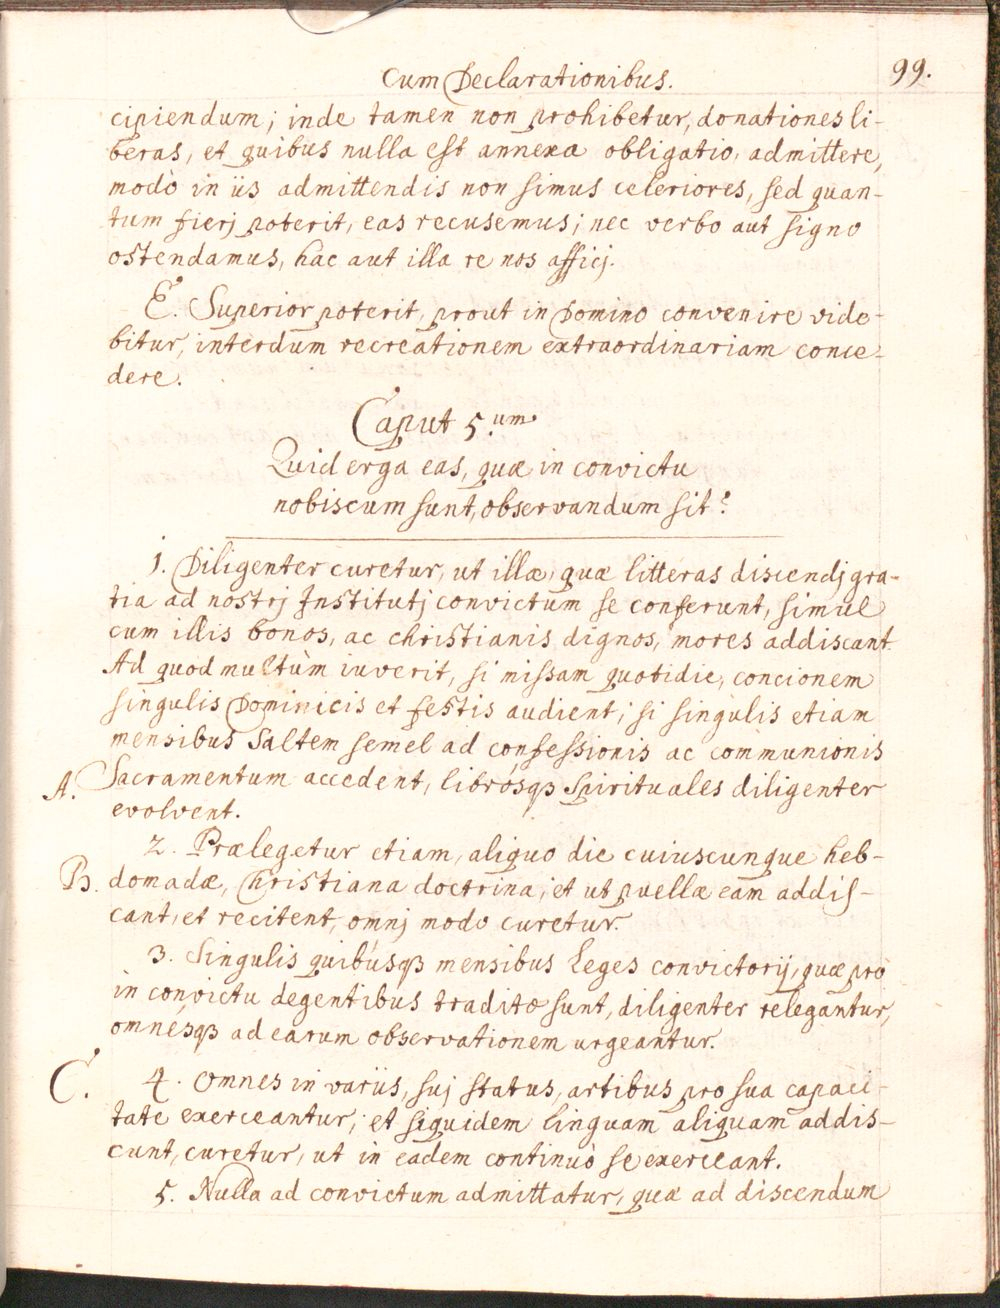 Cum Declarationibus.
99.
cipiendum; inde tamen non prohibetur, donationes li-
beras, et quibus nulla est annexa obligatio, admittere,
modò in iis admittendis non simus celeriores, sed quan-
tum fierj poterit, eas recusemus; nec verbo aut signo
ostendamus, hac aut illa re nos afficj.
E. Superior poterit, prout in Domino convenire vide-
bitur, interdum recreationem extraordinariam conce-
dere.
Caput 5.um
Quid erga eas, quæ in convictu
nobiscum sunt, observandum sit?
1. Diligenter curetur, ut illæ, quæ litteras discendj gra-
tia ad nostrj Institutj convictum se conferunt, simul
cum illis bonos, ac christianis dignos, mores addiscant.
Ad quod multùm iuverit, si missam quotidie, concionem
singulis Dominicis et festis audient; si singulis etiam
mensibus saltem semel ad confessionis ac communionis
A. Sacramentum accedent, librósqꝫ Spirituales diligenter
evolvent.
2. Prælegetur etiam, aliquo die cuiuscunque heb-
B. domadæ, Christiana doctrina; et ut puellæ eam addis-
cant, et recitent, omnj modo curetur.
3. Singulis quibúsqꝫ mensibus Leges convictorij, quæ pro
in convictu degentibus traditæ sunt, diligenter relegantur,
omnésqꝫ ad earum observationem urgeantur.
C. 4. Omnes in variis, suj status, artibus pro sua capaci-
tate exerceantur; et siquidem linguam aliquam addis-
cunt, curetur, ut in eadem continuò se exerceant.
5. Nulla ad convictum admittatur, quæ ad discendum